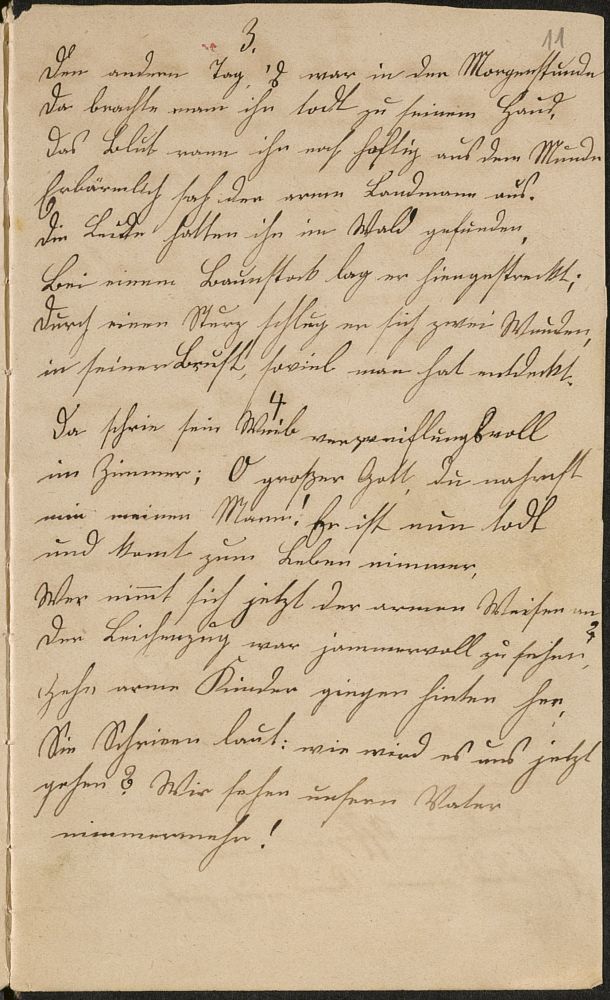 3.
11
Den andern Tag 's war in der Morgenstunde
Da brachte man ihn todt zu seinem Haus,
Das Blut rann ihn noch heftig aus dem Munde
Erbärmlich sah der arme Landmann aus.
Die Leute hatten ihn im Wald gefunden,
Bei einem Baumstock lag er hiengestreckt;
Durch einen Sturz schlug er sich zwei Wunden,
in seiner Brust, soviel man hat entdeckt.
4
Da schrie sein Weib verzweiflungsvoll
im Zimmer; O großer Gott, du nahmst
mir meinen Mann! Er ist nun todt
und komt zum Leben nimmer,
Wer nimt sich jetzt der armen Weisen an?
Der Leichenzug war jammervoll zu sehen,
Zehn arme Kinder giengen hinten her,
Sie Schrieen laut: wie wird es uns jetzt
gehen? Wir sehen unsern Vater
nimmermehr!